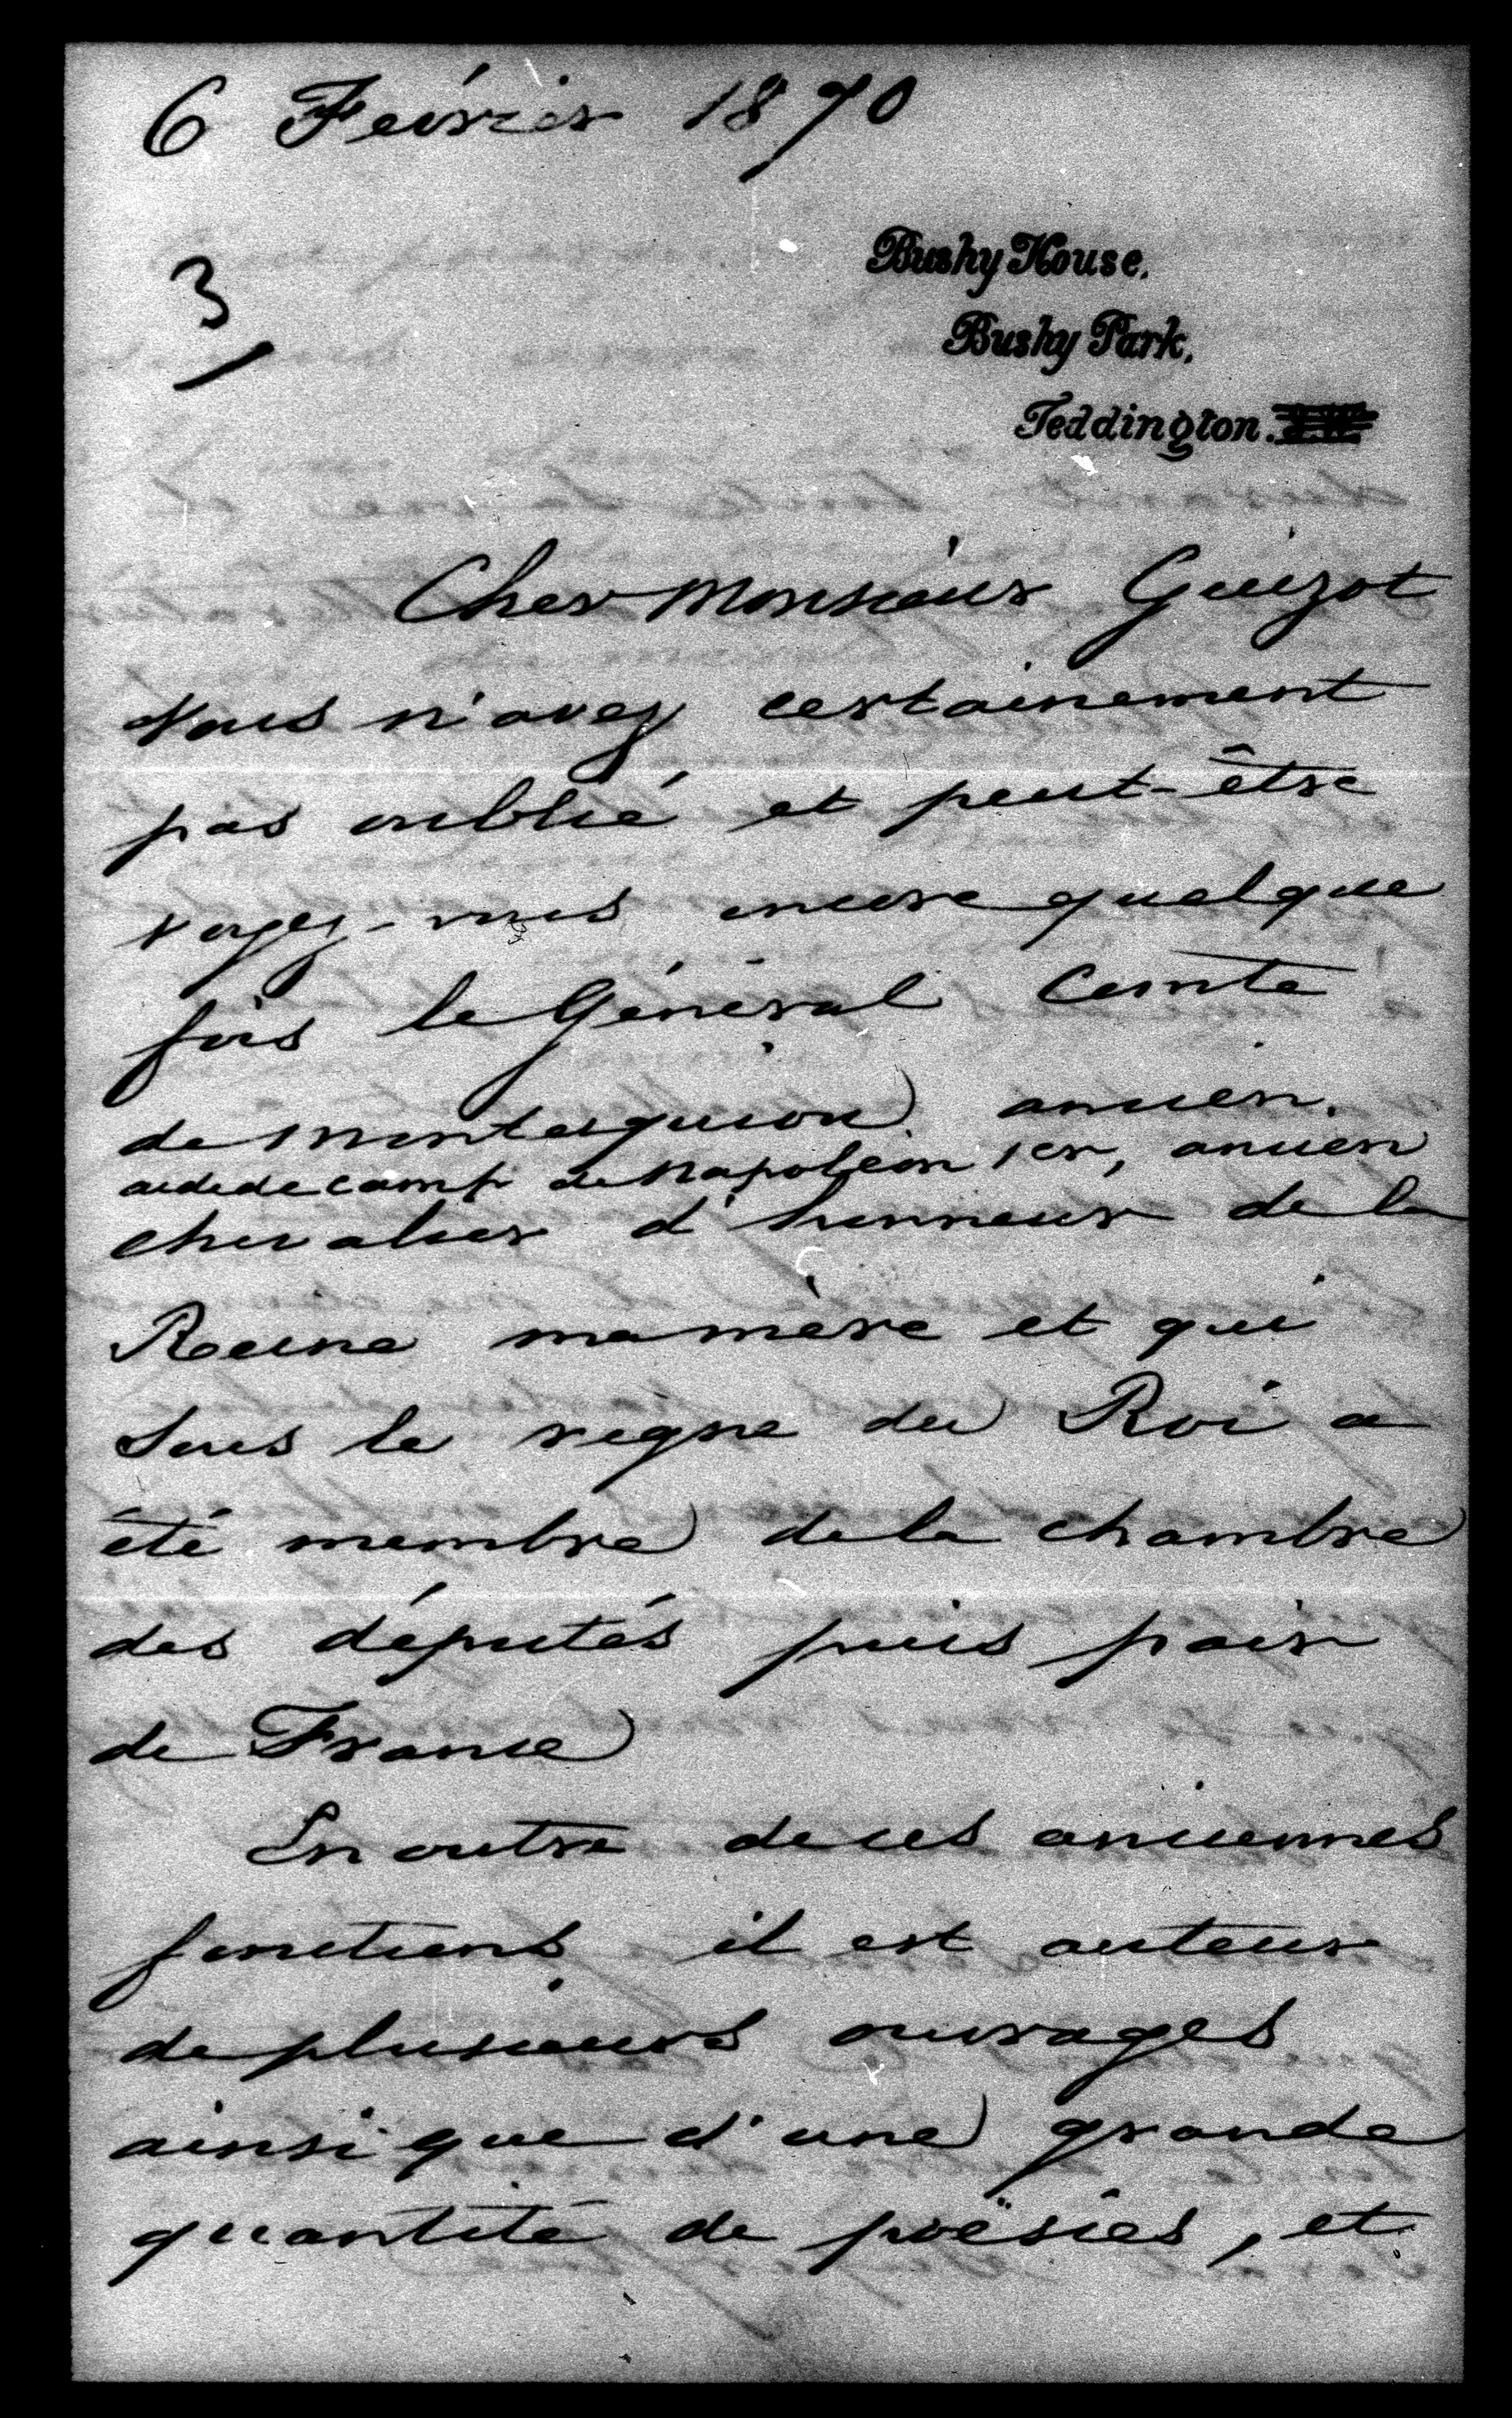 6 Février 1870
3
Bushy House,
Bushy Park,
Teddington.
Cher Monsieur Guizot
Vous n'avez certainement
pas oublié et peut-être
voyez-vous encore quelque
fois le Général Comte
de Montesquiou ancien
aide de camp de Napoléon 1er, ancien
chevalier d'honneur de la
Reine ma mère et qui
sous le règne du Roi a
été membre de la chambre
des députés puis pair
de France
En outre de ces anciennes
fonctions il est auteur
de plusieurs ouvrages
ainsi que d'une grande
quantité de poësies, et